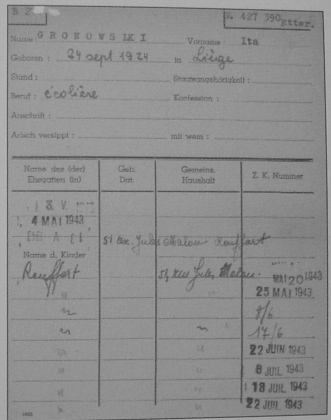 K. 487 390
Etter.
Name GRONOWSKI Vorname: Ita
Geboren: 24 sept 1924 in Liège
Stand: Staatsangehörigkeit:
Beruf: écolière Konfession:
Anschrift:
Arisch versippt: mit wem:
Name des (der) Ehegatten (in) Geb. Dat. Gemeins. Haushalt Z. K. Nummer
4 MAI 1943
51 Jules Malou
Name d. Kinder
Jules Malou
MAI 20 1943
25 MAI 1943
8/6
17/6
22 JUIN 1943
6 JUIL 1943
22 JUIL 1943